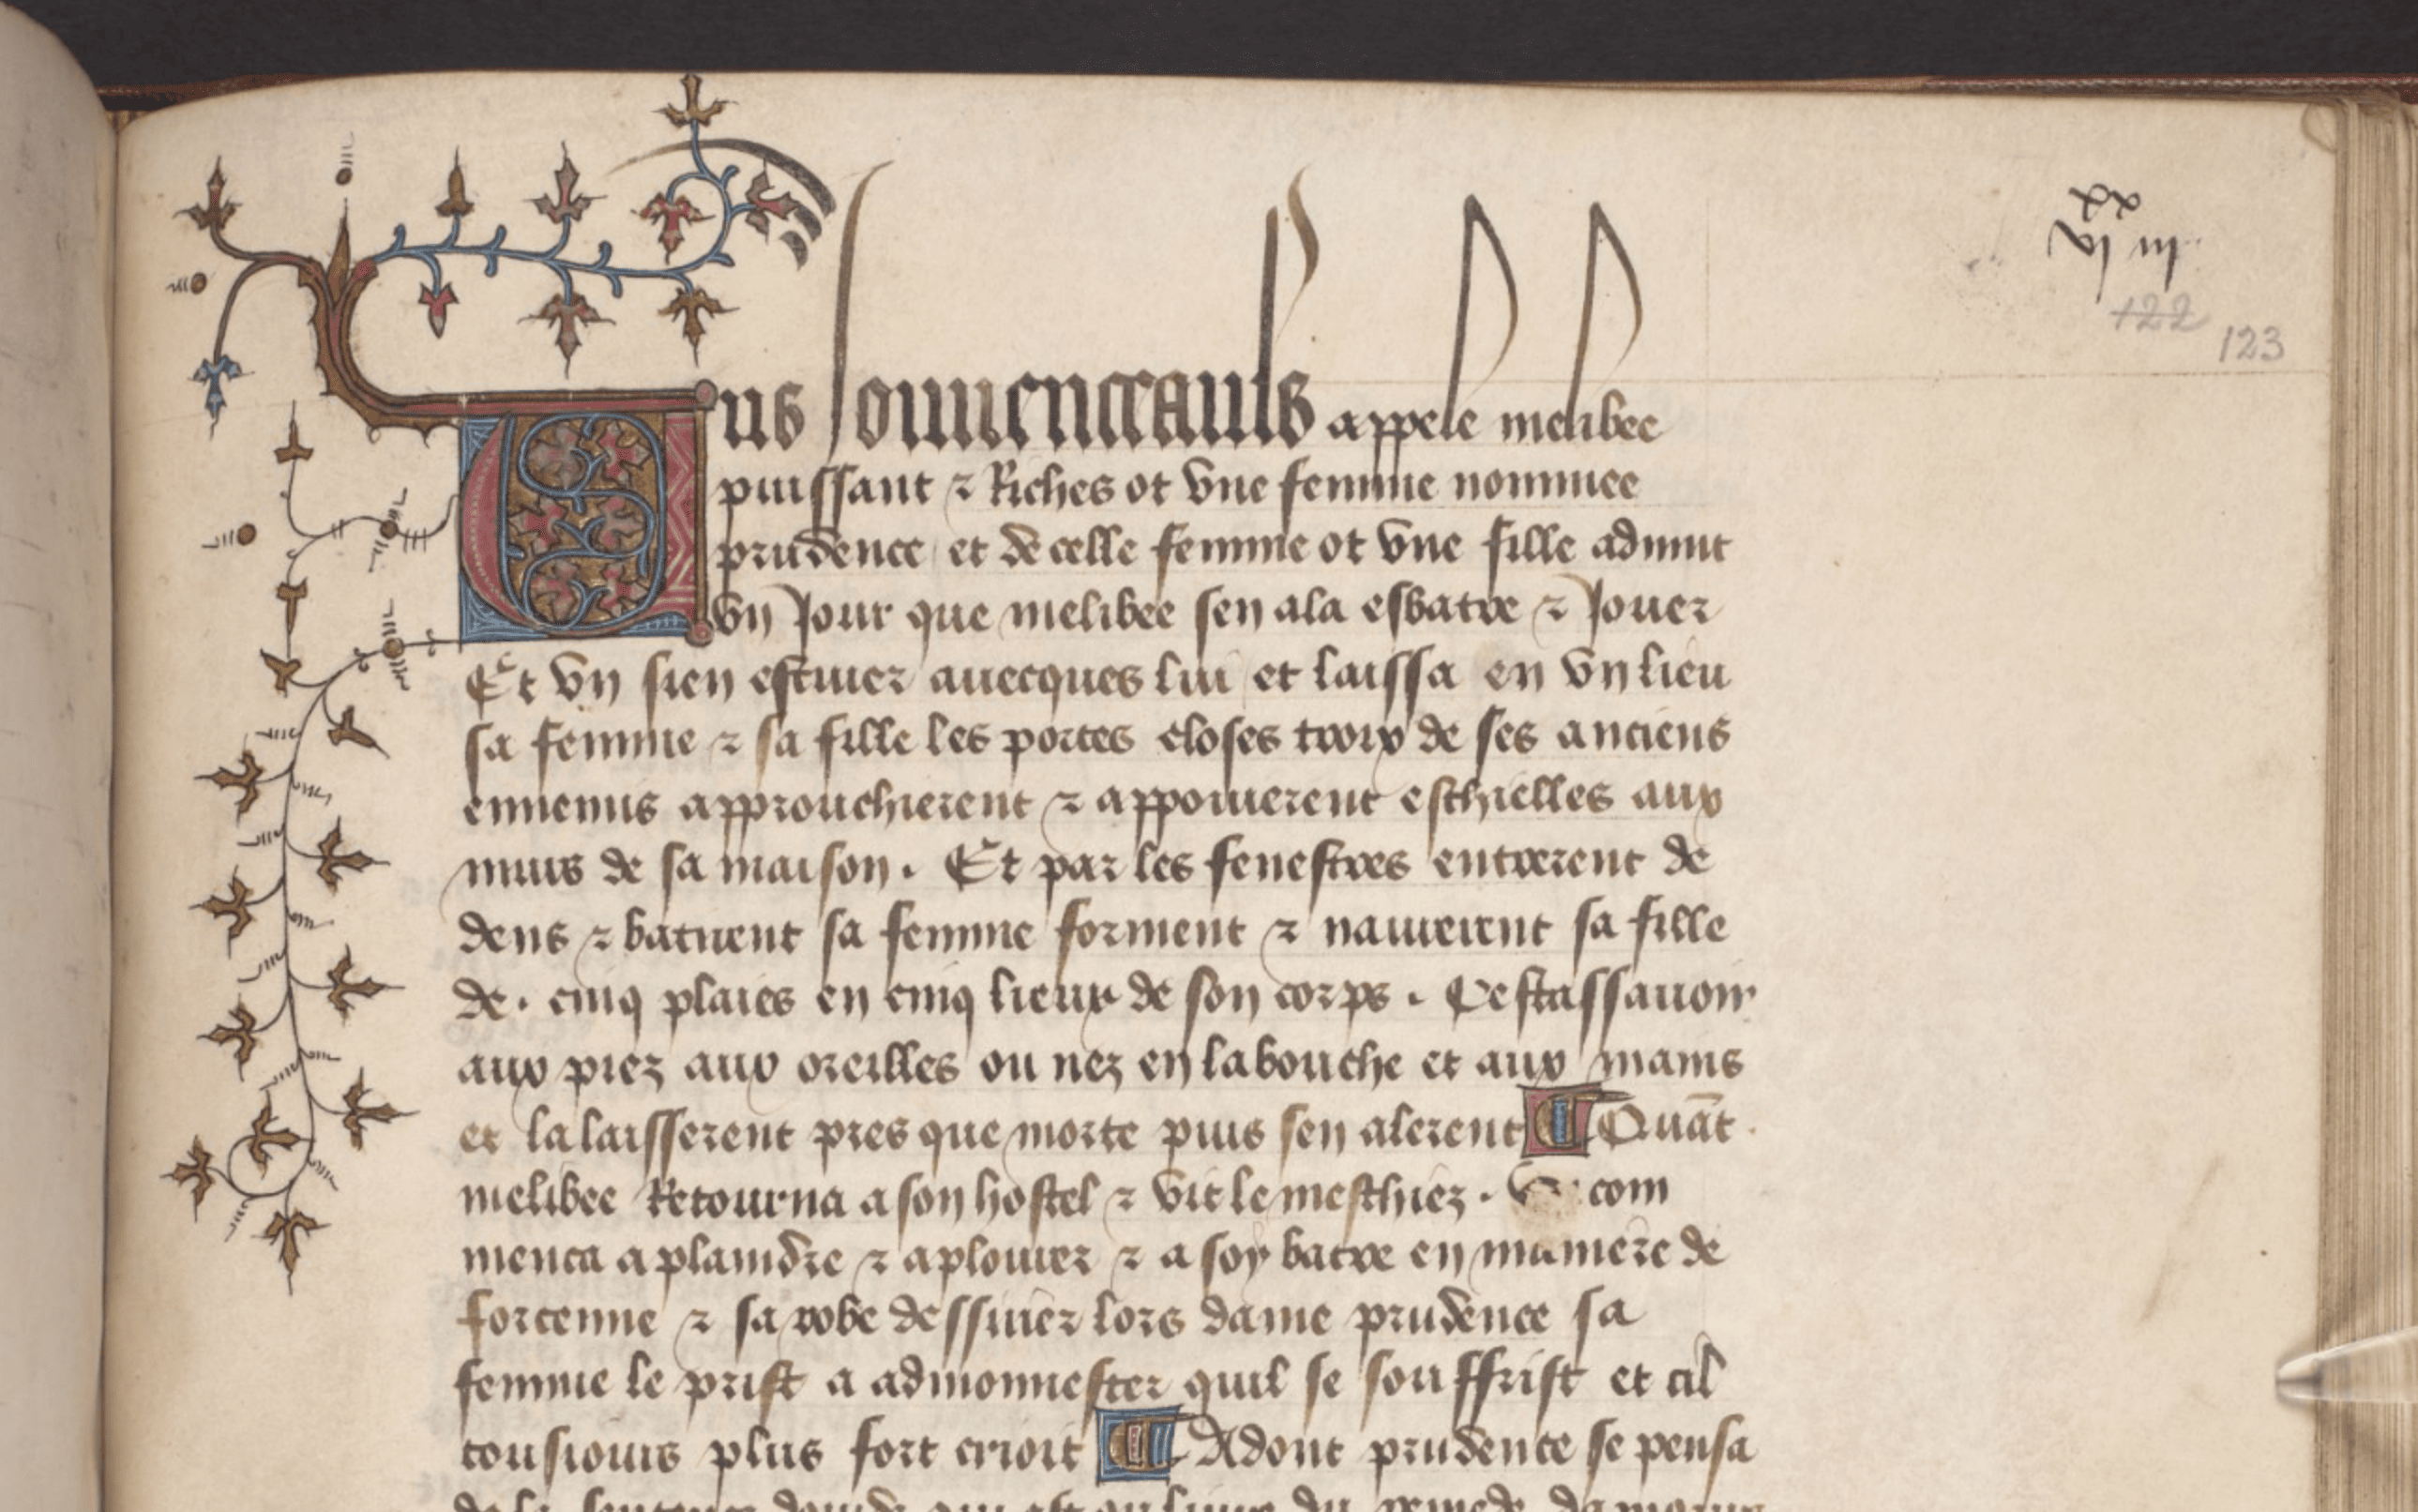 122
123
Uns Jouuenceauls appele melibee
puissant ⁊ Riches ot vne femme nommee
prudence et de celle femme ot vne fille aduint
vn Jour que melibee sen ala esbatre ⁊ Jouer
Et vn sien escuier auecques lui et laissa en vn lieu
sa femme ⁊ sa fille les portes closes troix de ses anciens
ennemis approuchierent ⁊ appoierent eschielles aux
murs de sa maison . Et par les fenestres entrerent de
dens ⁊ batirent sa femme forment ⁊ naurerent sa fille
de . cinq plaies en cinq lieux de son corps . Cestassauoir
aux piez aux oreilles ou nez en la bouche et aux mains
et la laisserent pres que morte puis sen alerent ¶ Quāt
melibee Retourna a son hostel ⁊ vit le meschiez . com
menca a plaindre ⁊ a plourer ⁊ a soy batre en maniere de
forcenne ⁊ sa robe dessirer lors dame prudence sa
femme le prist a admonnester quil se souffrist et cil
tousiours plus fort crioit ¶ Adont prudence se pensa